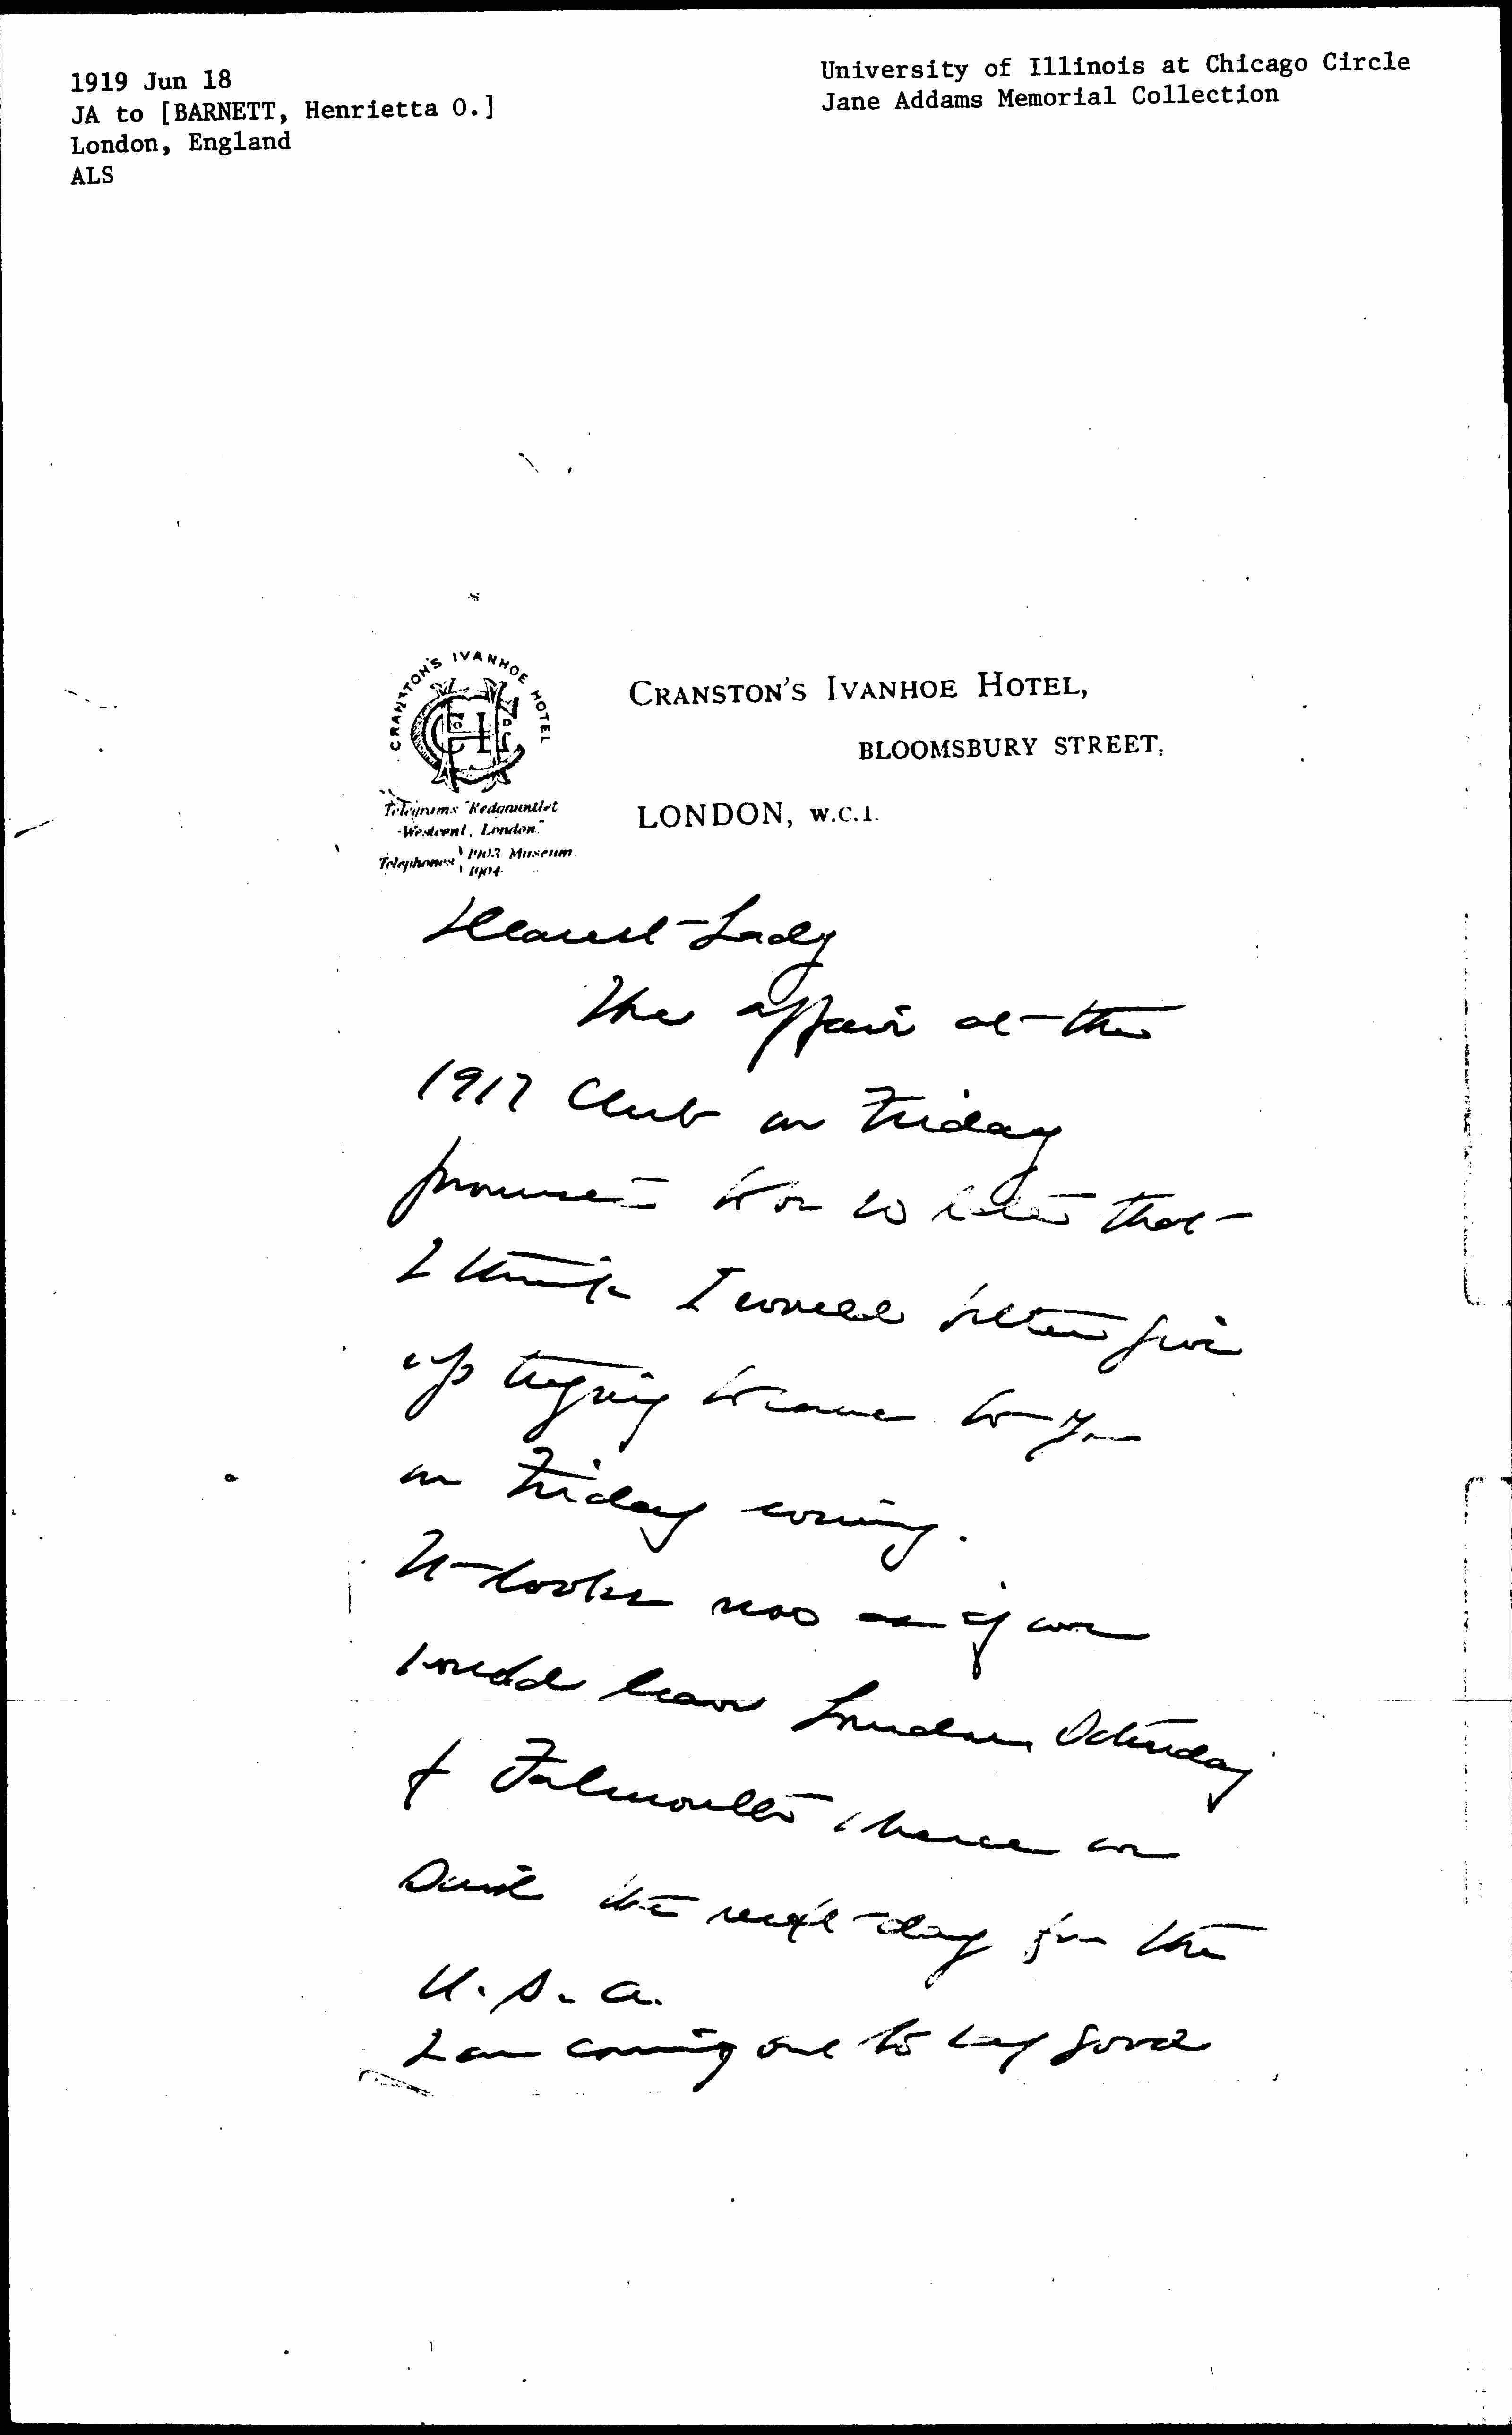 1919 Jun 18
JA to [BARNETT, Henrietta O.]
London, England
ALS
University of Illinois at Chicago Circle
Jane Addams Memorial Collection
CRANSTON'S IVANHOE HOTEL
CRANSTON'S IVANHOE HOTEL,
BLOOMSBURY STREET,
LONDON, W.C.1.
Telegrams "Redgauntlet
Westcent, London."
Telephones 1903 Museum
1904
Dearest Lady
The affair at the
1917 Club on Friday
promises to be so late that
I think I would better give
up trying to come to you
on Friday coming.
It looks now as if we
would leave London Saturday
& Falmouth hence on
Sunil the next day for the
U.S.A.
I am coming out to say good